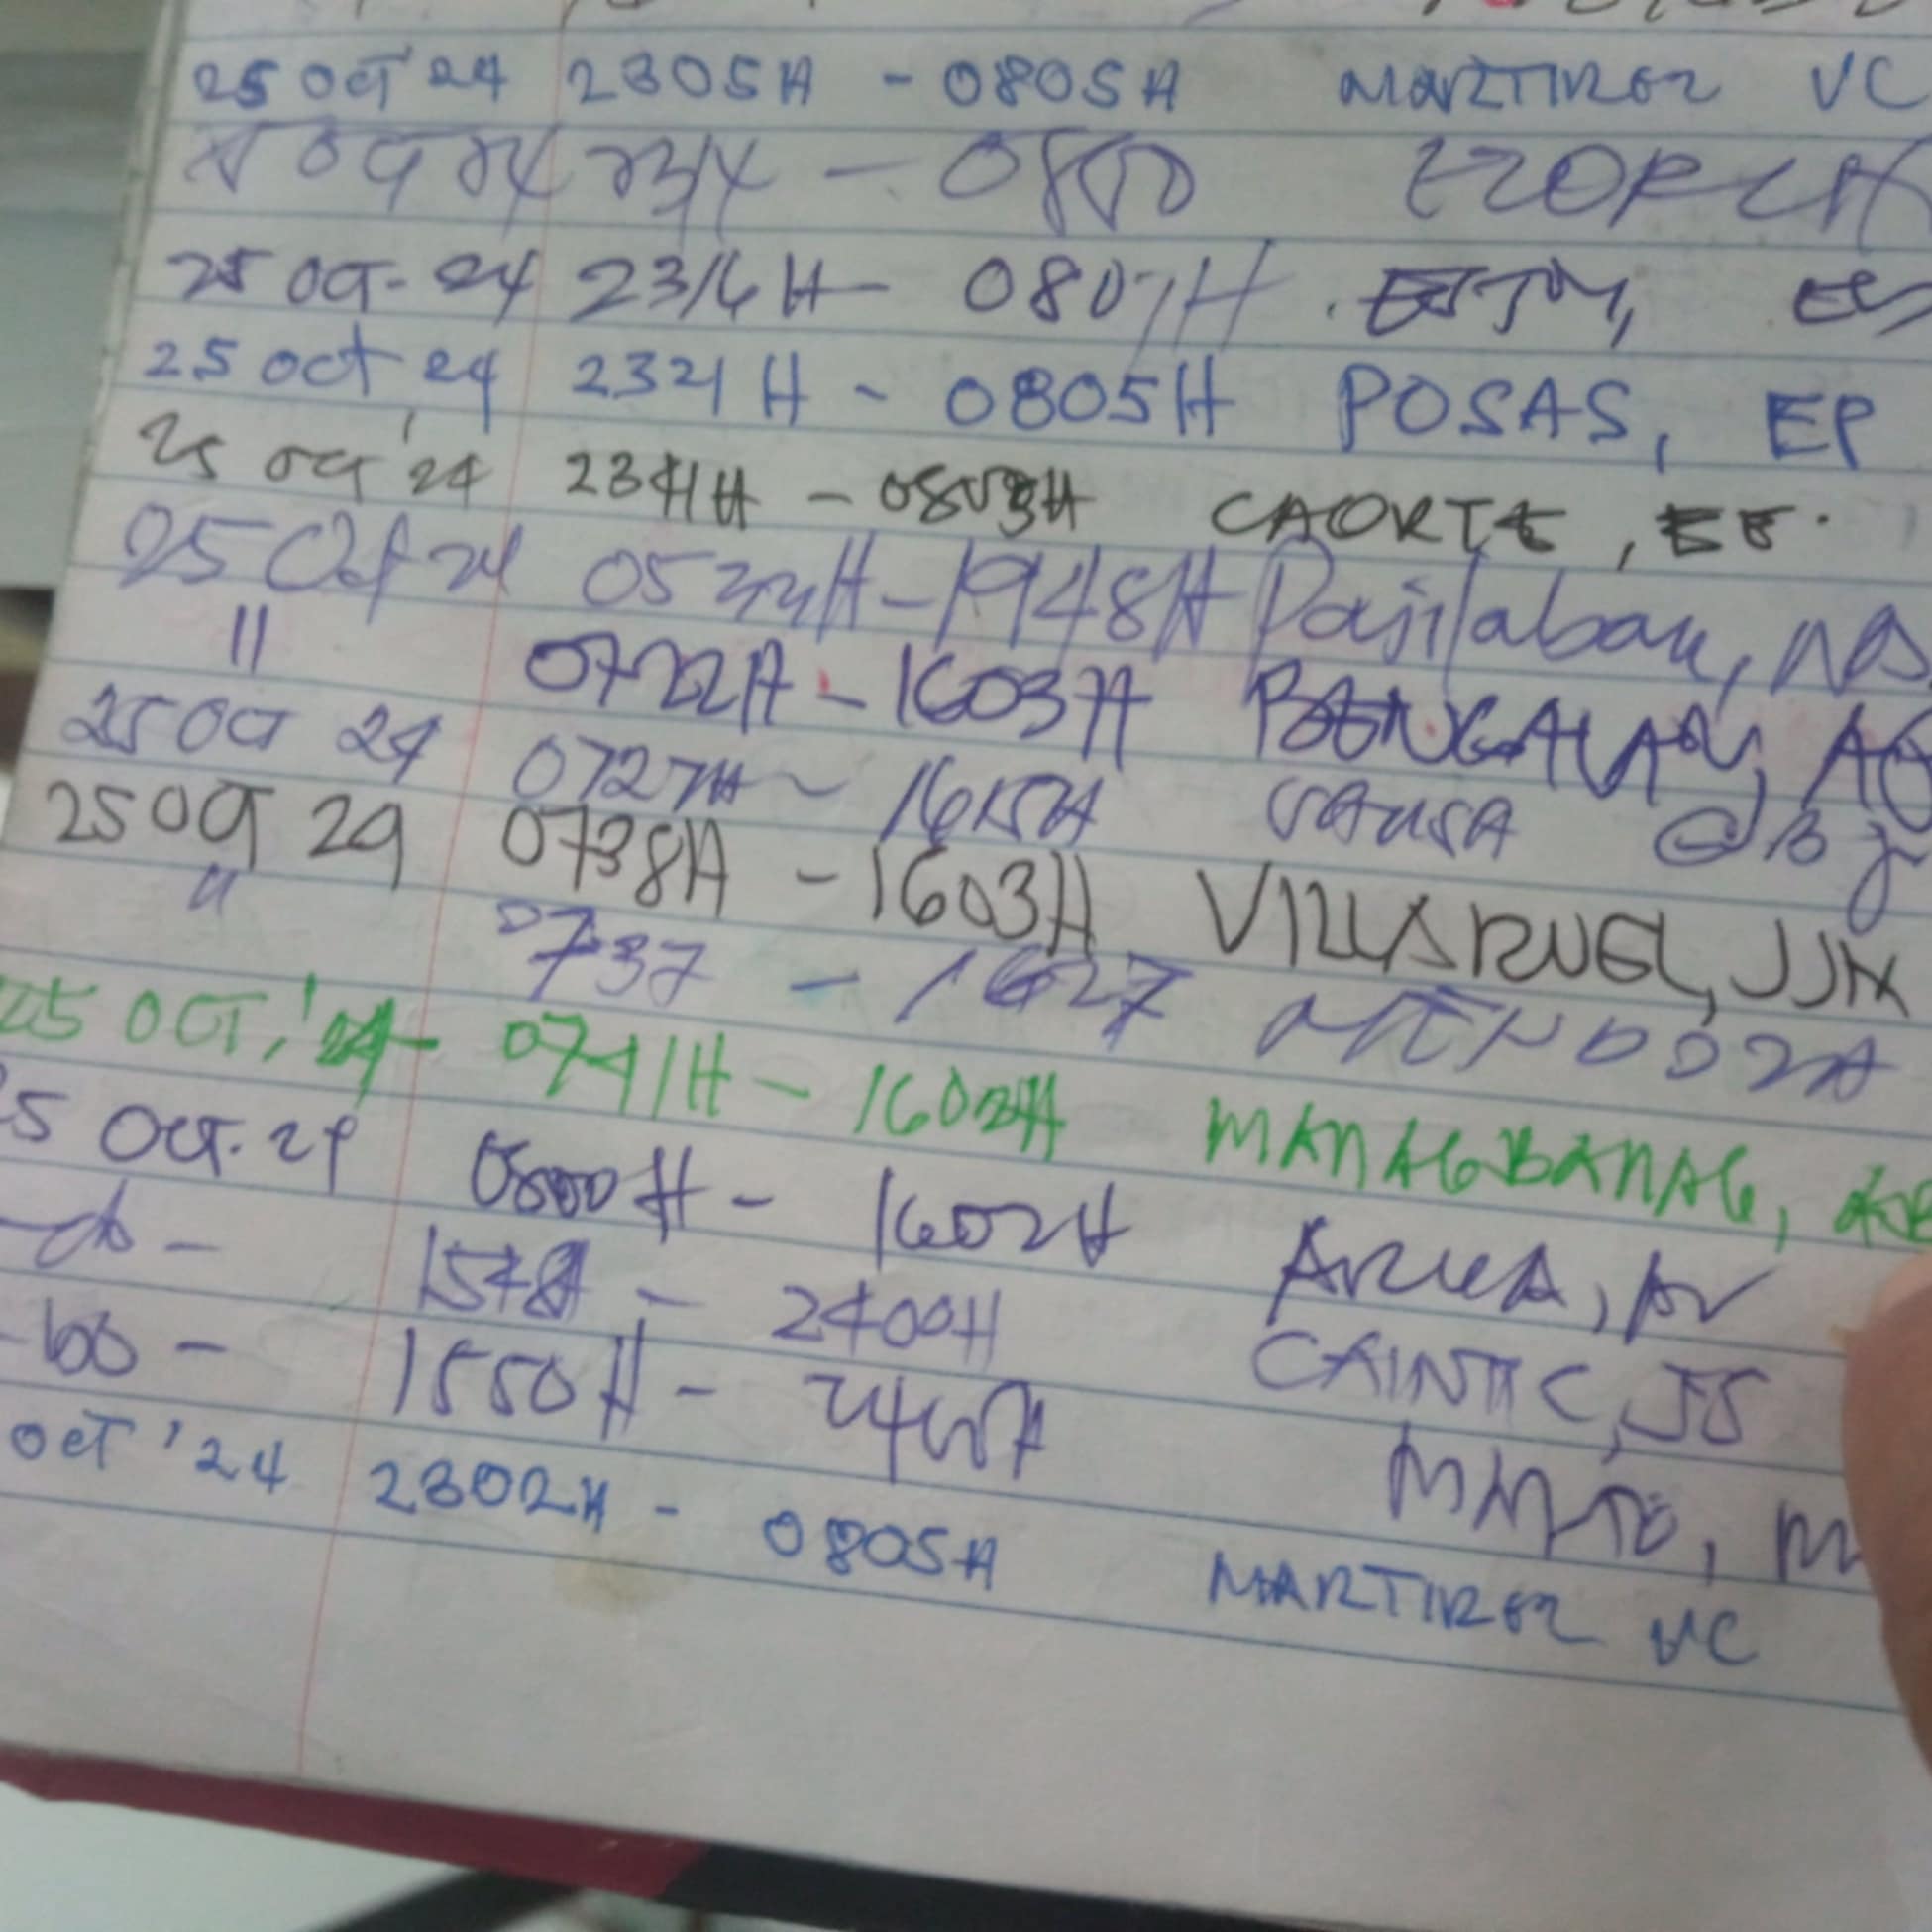 25 OCT '24 2305H - 0805H MARTIREZ VC
25 OCT 24 2314 - 0800
25 OCT. 24 2316H - 0807H
25 Oct 24 2321H - 0805H POSAS, EP
25 OCT '24 2341H - 0803H CAORTE, EE.
25 Oct 24 0522H - 1948H Pajilaban, NS
" 0722H - 1603H BANGALAN, AG
25 OCT 24 0727H - 1615H
25 OCT 24 0738H - 1603H VILLARUEL, JJN
" 0737 - 1627 MENDOZA
25 OCT, '24 - 0741H - 1602H MANAGBANAG,
5 OCT. 24 0800H - 1602H
-do- 1548H - 2400H CAINTIC, JS
-do- 1550H - 2400H
OCT '24 2302H - 0805H MARTIREZ VC